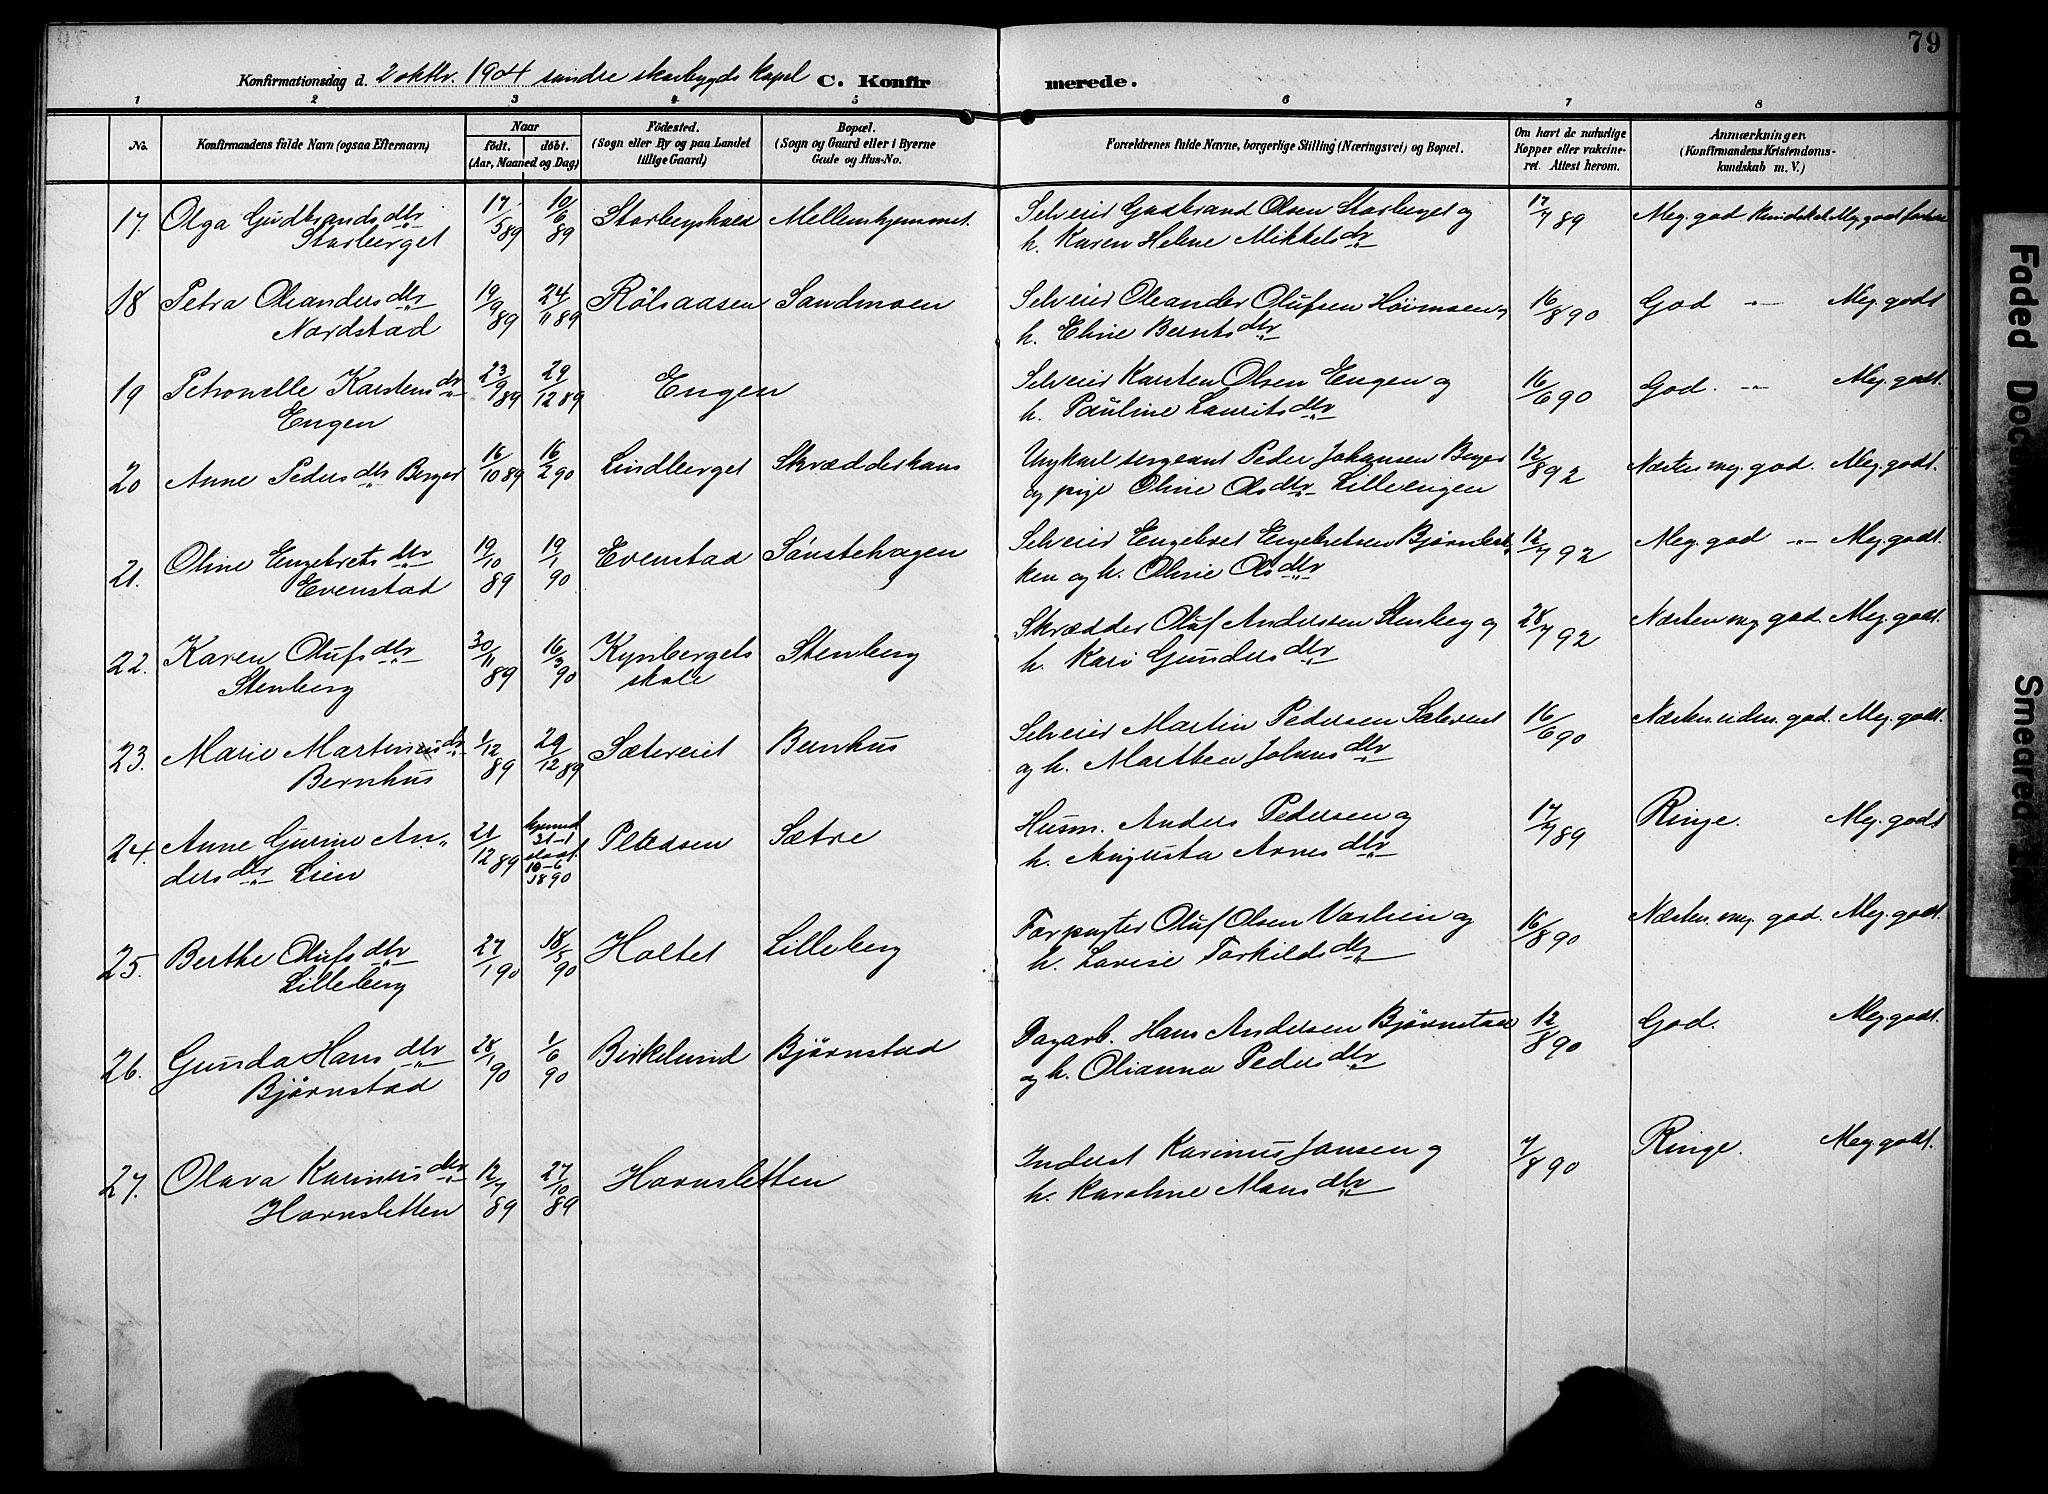 79
Konfirmationsdag d. 2 oktbr. 1904 søndre skarbygds kapel C. Konfirmerede.
1 2 3 4 5 6 7 8
No.
Konfirmandens fulde Navn (ogsaa Efternavn)
Naar
født. døbt.
(Aar, Maaned og Dag)
Fødested.
(Sogn eller By og paa Landet
tillige Gaard)
Bopæl.
(Sogn og Gaard eller i Byerne
Gade og Hus-No.
Forældrenes fulde Navne, borgerlige Stilling (Næringsvei) og Bopæl.
Om havt de naturlige
Kopper eller vakcine-
ret. Attest herom.
Anmærkninger.
(Konfirmandens Kristendoms-
kundskab m. V.)
17. Olga Gudbrandsdtr 17/5 89 10/6 89 Storbergskvea Mellemhjemmet. Selveier Gudbrand Olsen Storberget og 17/7 89 Meg. god kundskab Meg. godt
Storberget h. Karen Helene Mikkelsdtr
18 Petra Oleandersdtr 19/9 89 24/11 89 Rölsaasen Sandmoen Selveier Oleander Olufsen Höimoen og 16/8 90 God " Meg. godt
Nordstad h. Eline Berntsdtr
19 Petronelle Karstensdtr 23/9 89 29/12 89 Engen Selveier Karsten Olsen Engen og 16/6 90 God. " Meg. godt.
Engen h. Pauline Lauritsdtr
20 Anne Pedersdtr Berger 16/10 89 16/2 90 Lindberget Skrædderhaus Ungkarl sergeant Peder Johansen Berger 12/8 92 Næsten meg. god. Meg. godt.
og pige Oline Olsdtr Lilleengen
21. Oline Engebretsdtr 19/10 89 19/1 90 Evenstad Sönstehagen Selveier Engebret Engebretsen Bjørnbek- 12/7 92 Meg. god " Meg. godt.
Evenstad ken og h. Oline Olsdtr
22. Karen Olufsdtr 30/11 89 16/3 90 Kynbergets Stenberg Skrædder Oluf Andersen Stenberg og 28/7 92 Næsten meg god. Meg. godt.
Stenberg skole h. Kari Gundersdtr
23. Marie Martinusdtr 1/12 89 29/12 89 Sætereiet Bernhus Selveier Martin Pedersen Sætereiet 16/6 90 Næsten uden. god. Meg. godt.
Bernhus og h. Marthea Johnsdtr
24. Anne Gurine An- 21/12 89 hjemmed. 31-1 stadf. 10-6 1890 Pladsen Sætre Husm. Anders Pedersen og 17/7 89 Ringe. Meg. godt
dersdtr Lien h. Augusta Arnesdtr
25. Berthe Olufsdtr 27/1 90 18/5 90 Holtet Lilleberg Forpagter Oluf Olsen Vaslien og 16/8 90 Næsten meg. god. Meg. godt.
Lilleberg h. Lovise Torkildsdtr
26. Gunda Hansdtr 28/1 90 1/6 90 Birkelund Bjørnstad Dagarb. Hans Andersen Bjørnstad 12/8 90 God. Meg. godt.
Bjørnstad og h. Olianna Pedersdtr
27. Olava Karinusdtr 12/7 89 27/10 89 Hornsletten Inderst Karinus Jansen og 7/8 90 Ringe. Meg. godt.
Hornsletten h. Karoline Mansdtr
Faded Doc
Smeared